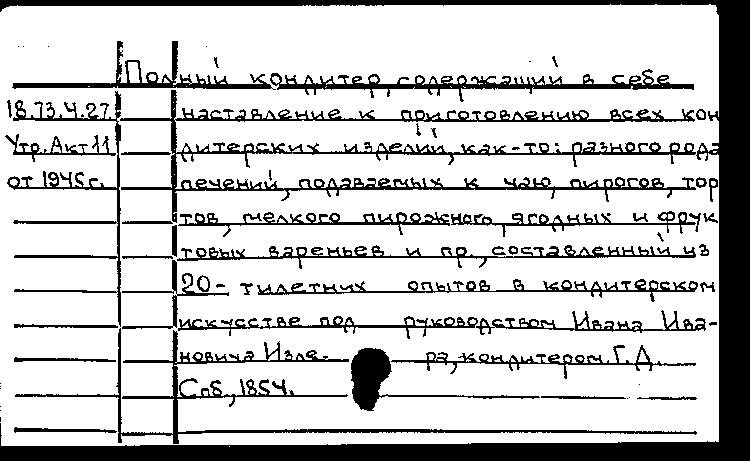 Полный кондитер, содержащий в себе
18.73.4.27. наставление к приготовлению всех кон
Утр. Акт 11 дитерских изделий, как-то: разного рода
от 1945 г. печений, подаваемых к чаю, пирогов, тор
тов, мелкого пирожного, ягодных и фрук
товых вареньев и пр., составленный из
20-тилетних опытов в кондитерском
искусстве под руководством Ивана Ива-
новича Изле- ра, кондитером. Г. Д.
Спб, 1854.